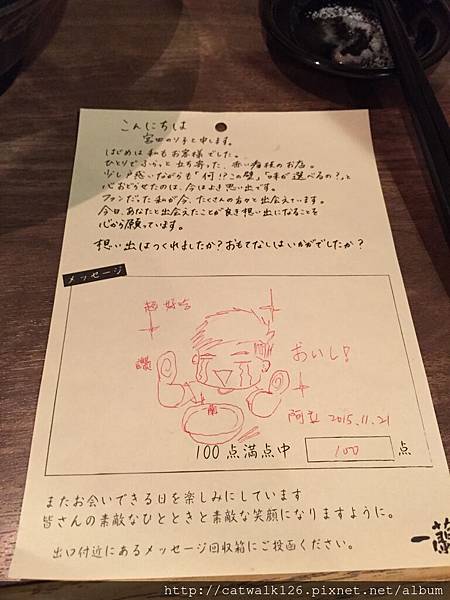 こんにちは
宮田のり子と申します。
はじめは私もお客様でした。
ひとりでふらっと立ち寄った、赤い看板のお店。
少し戸惑いながらも「何!?この壁」「味が選べるの?」と
心おどらせたのは、今は良き思い出です。
ファンだった私が今、たくさんの方々と出会えています。
今日、あなたと出会えたことが良き想い出になることを
心から願っています。
想い出はつくれましたか?おもてなしはいかがでしたか?
メッセージ
超好吃
讚
おいし!
2015.11.21
100点満点中 100 点
またお会いできる日を楽しみにしています
皆さんの素敵なひとときと素敵な笑顔になりますように。
出口付近にあるメッセージ回収箱にご投函ください。
一蘭
http://catwalk126.pixnet.net/album